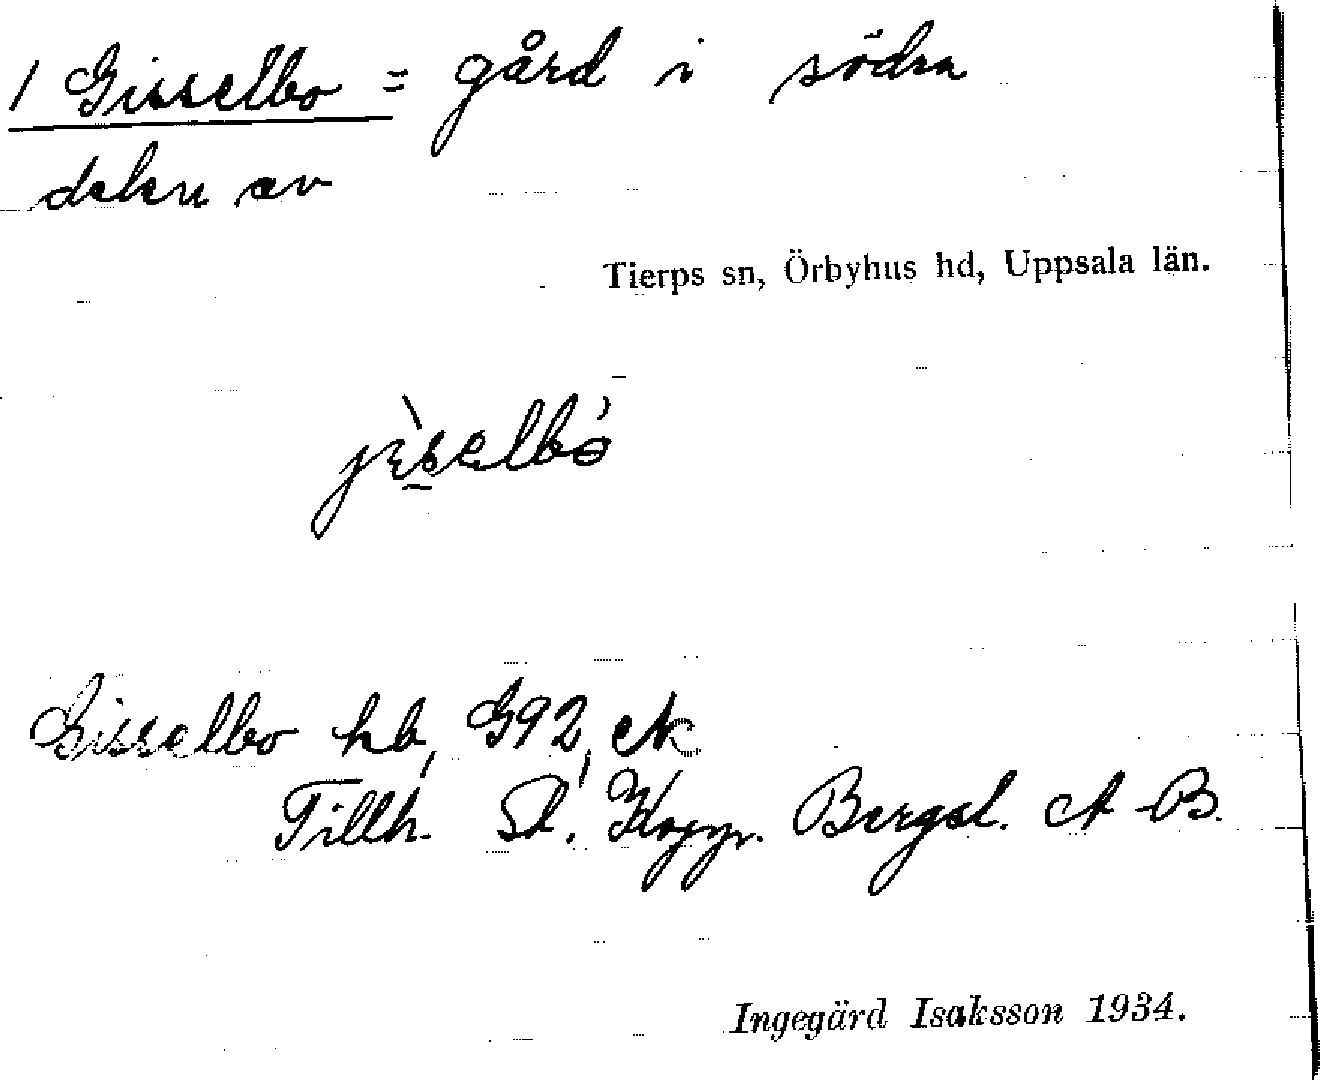 1 Gisselbo = gård i södra
delen av
Tierps sn, Örbyhus hd, Uppsala län.
Gisselbo hb, G92, ek
Tillh. St. Kopp. Bergsl. A-B.
Ingegärd Isaksson 1934.